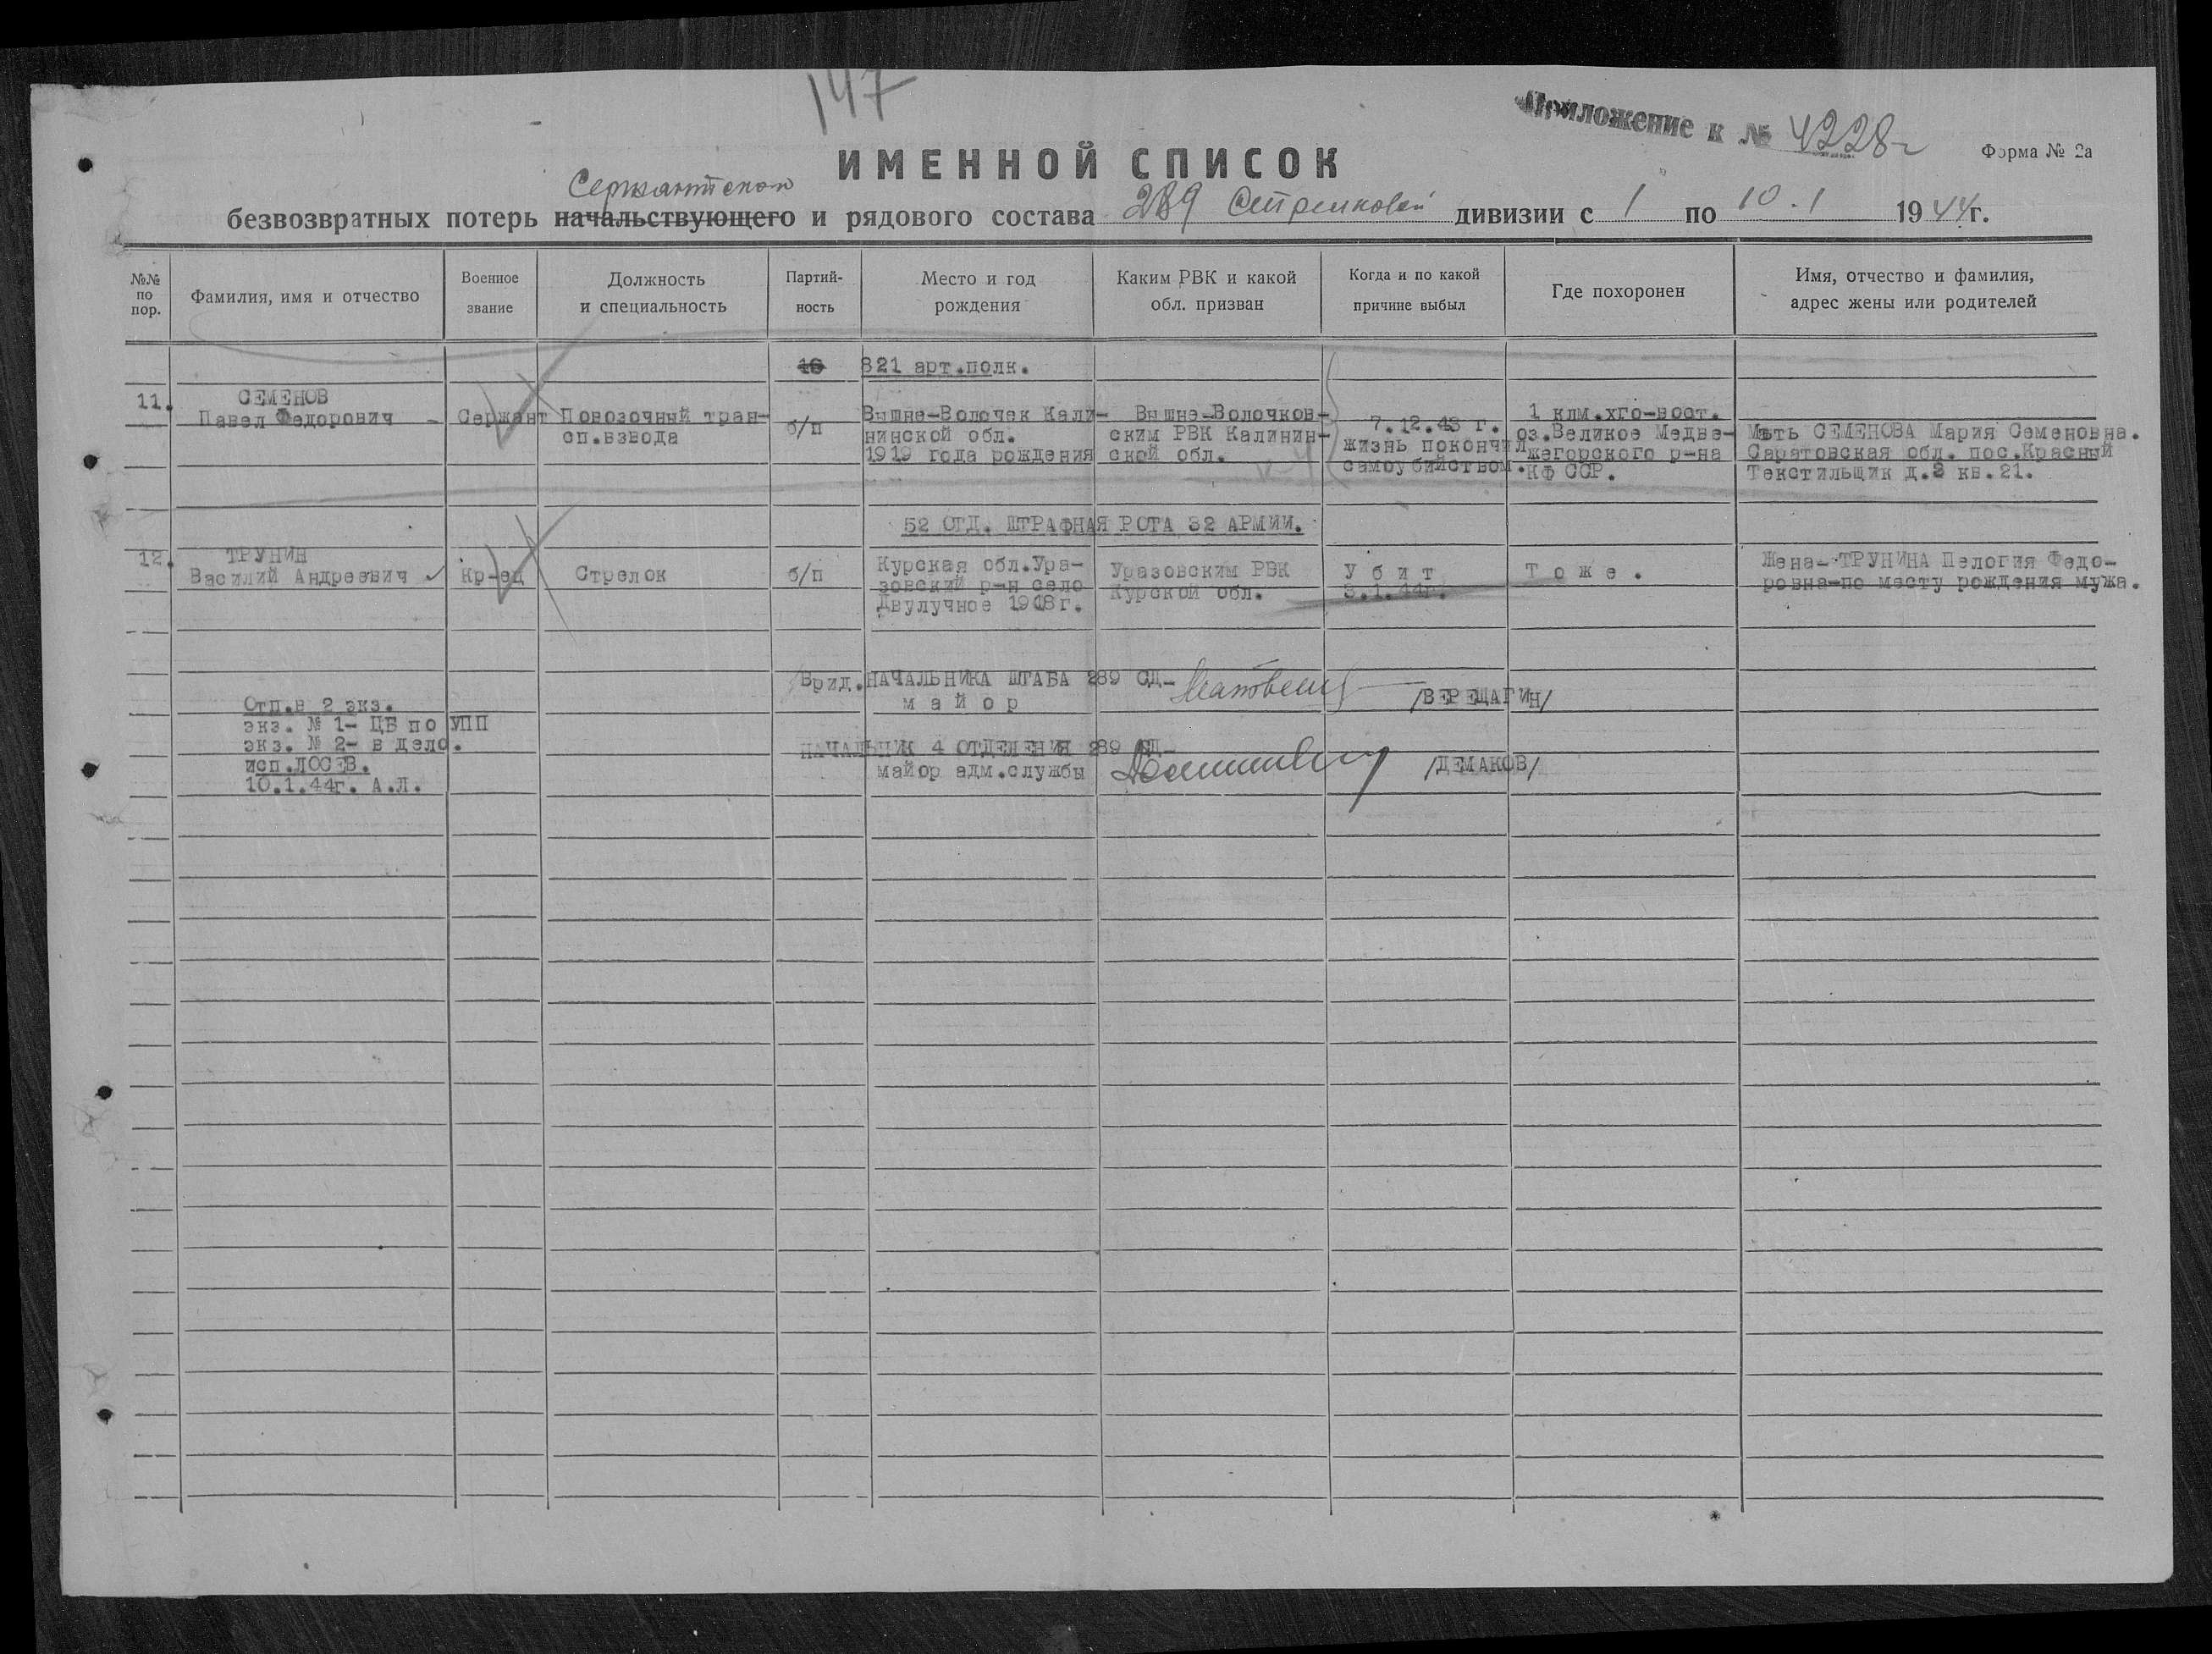 147
Приложение к № 4228
Форма № 2а
ИМЕННОЙ СПИСОК
Сержантског
безвозвратных потерь начальствующего и рядового состава 289 Стрелковой дивизии с 1 по 10.1 1944г.
№№ по пор.
Фамилия, имя и отчество
Военное звание
Должность и специальность
Партий- ность
Место и год рождения
Каким РВК и какой обл. призван
Когда и по какой причине выбыл
Где похоронен
Имя, отчество и фамилия, адрес жены или родителей
16 821 арт.полк.
11.
СЕМЕНОВ
Павел Федорович -
Сержант
Повозочный тран-
сп.взвода
б/п
Вышне-Волочек Кали-
нинской обл.
1919 года рождения
Вышне-Волочков-
ским РВК Калинин-
ской обл.
7.12.43 г.
жизнь покончил
самоубийством.
1 клм.хго-вост.
оз.Великое Медве-
жегорского р-на
КФ ССР.
Мать СЕМЕНОВА Мария Семеновна.
Саратовская обл. пос.Красный
Текстильщик д.2 кв.21.
52 ОТД. ШТРАФНАЯ РОТА 32 АРМИИ.
12.
ТРУНИН
Василий Андреевич
Кр-ец
Стрелок
б/п
Курская обл.Ура-
зовский р-н село
Двулучное 1908г.
Уразовским РВК
Курской обл.
Убит
3.1.44г.
Тоже.
Жена-ТРУНИНА Пелогия Федо-
ровна-по месту рождения мужа.
Врид.НАЧАЛЬНИКА ШТАБА 289 СД-
майор /ВЕРЕЩАГИН/
НАЧАЛЬНИК 4 ОТДЕЛЕНИЯ 289 СД-
майор адм.службы /ДЕМАКОВ/
Отп.в 2 экз.
экз. № 1- ЦБ по УПП
экз. № 2- в дело.
исп.ЛОСЕВ.
10.1.44г. А.Л.